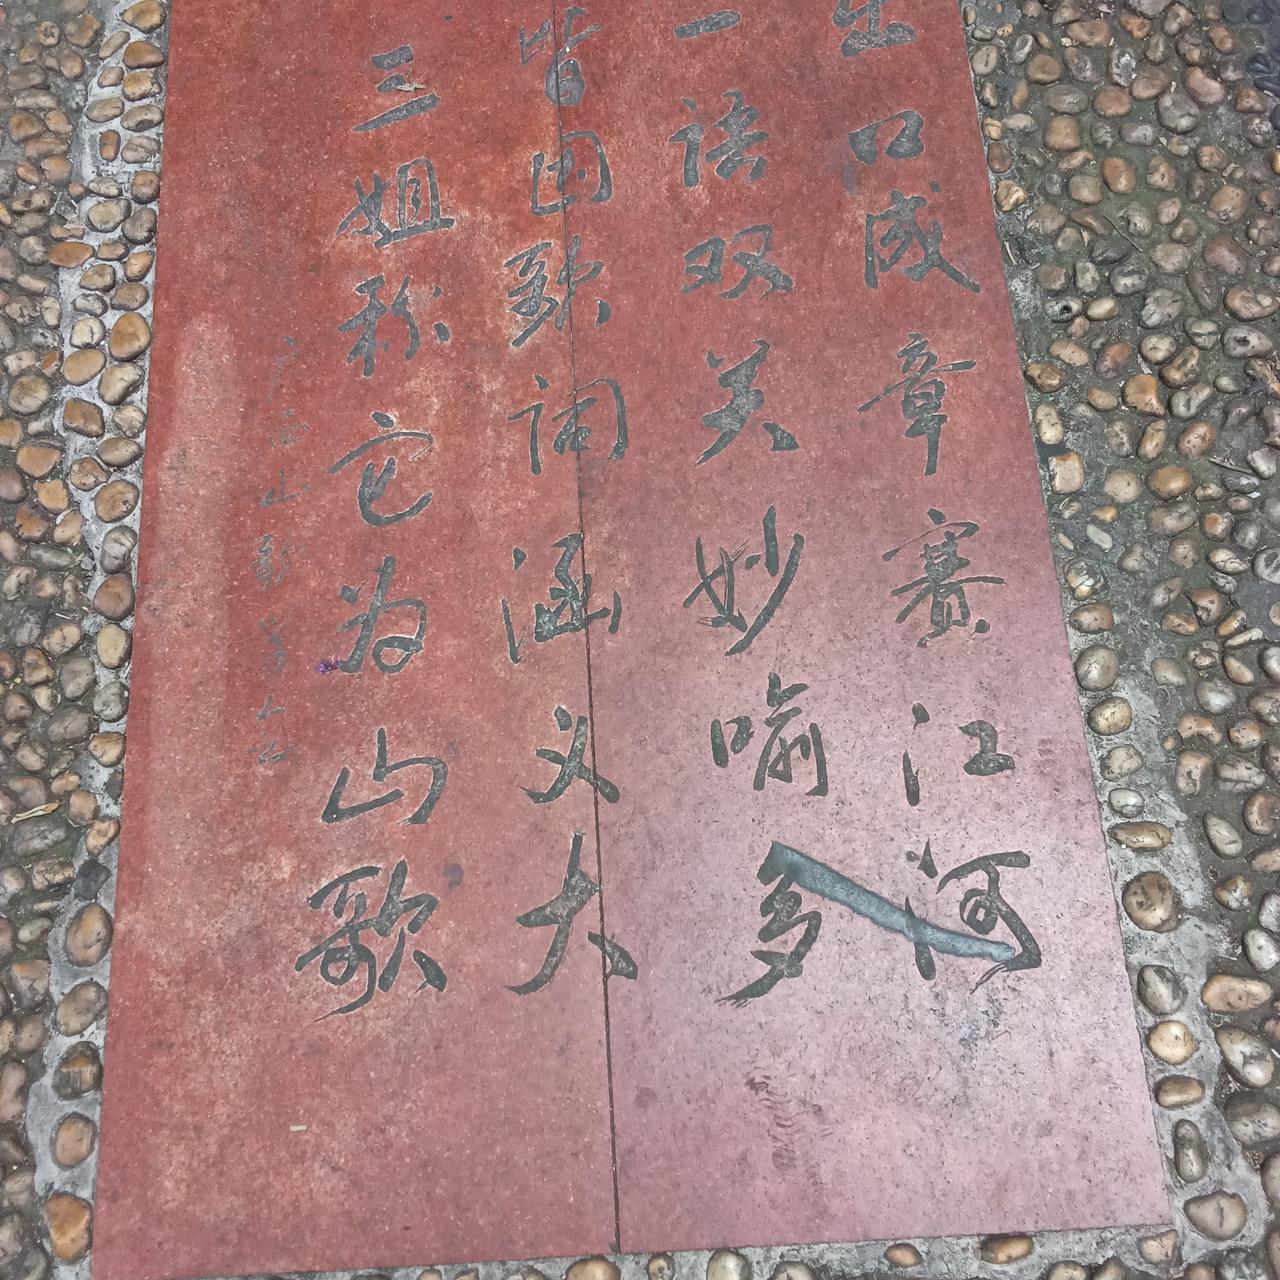 出口成章赛江河
一语双关妙喻多
皆因歌词涵义大
三姐称它为山歌
广西山歌学会